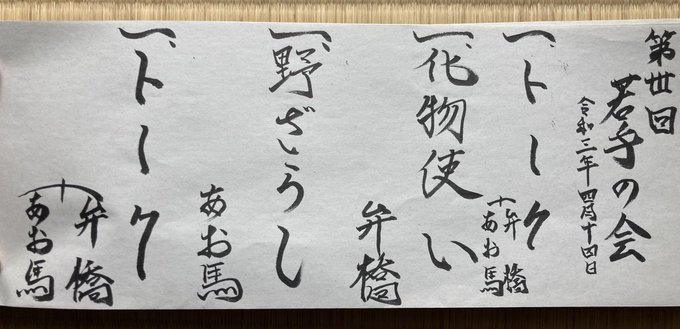 第丗回
若手の会
令和三年 四月十四日
一、トーク
弁橋
+あお馬
一、化物使い
弁橋
一、野ざらし
あお馬
一、トーク
弁橋
+あお馬